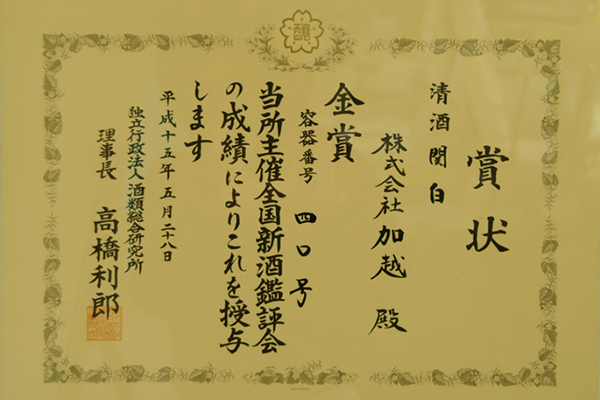 賞状
清酒関白
株式会社加越殿
金賞
容器番号 四〇号
当所主催全国新酒鑑評会
の成績によりこれを授与
します
平成十五年五月二十八日
独立行政法人酒類総合研究所
理事長 高橋利郎